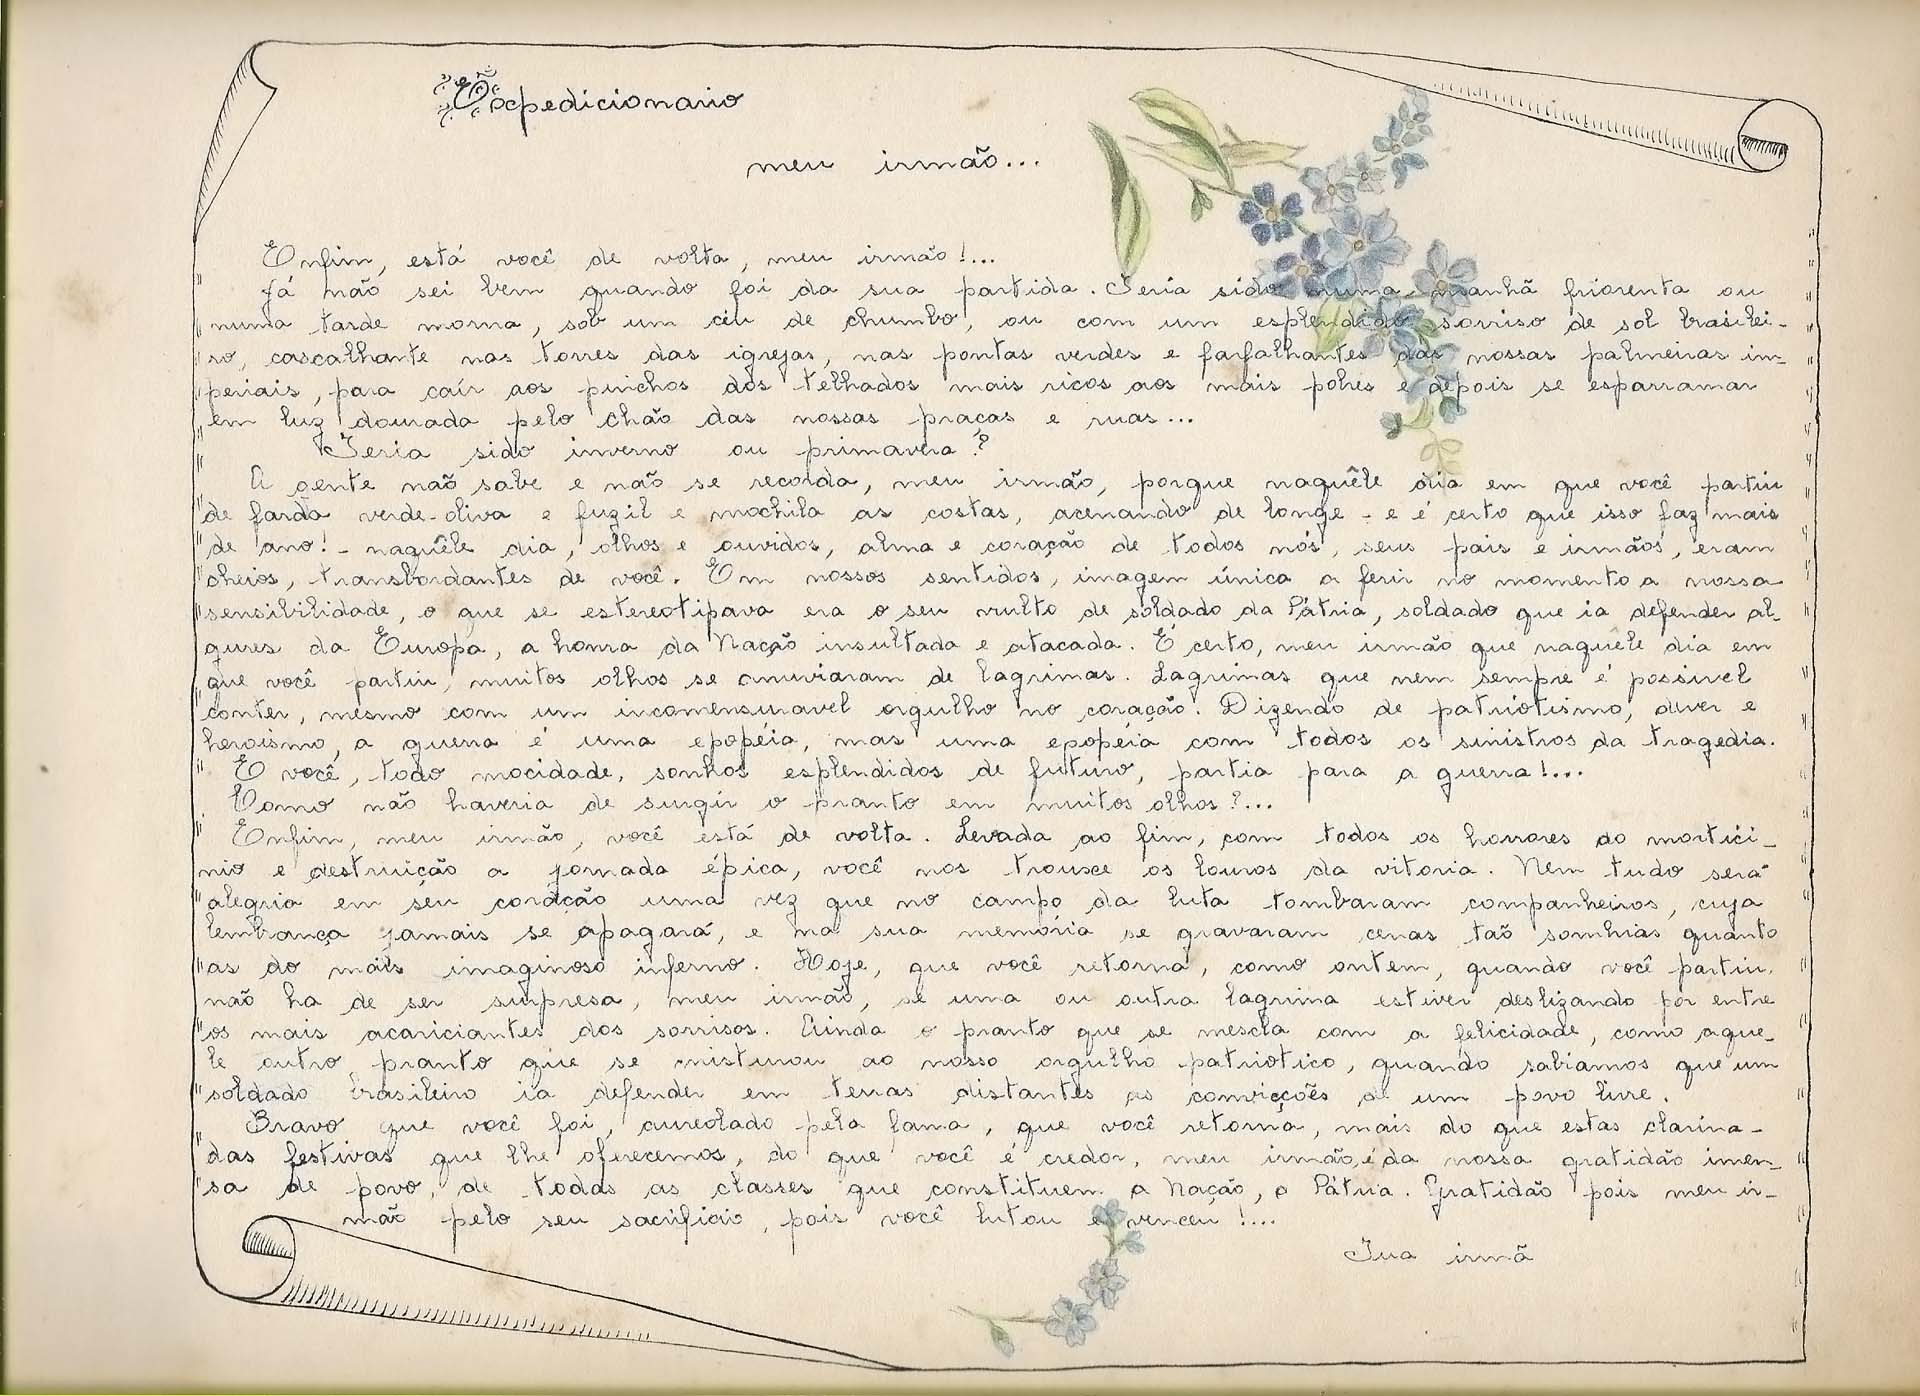 Expedicionario
meu irmão...
Enfim, está você de volta, meu irmão!...
Já não sei bem quando foi da sua partida. Teria sido numa manhã friorenta ou
numa tarde morna, sob um céu de chumbo, ou com um esplendido sorriso de sol brasilei-
ro, cascalhante nas torres das igrejas, nas pontas verdes e farfalhantes das nossas palmeiras im-
periais, para caír aos pinchos dos telhados mais ricos aos mais pobres e depois se esparramar
em luz dourada pelo chão das nossas praças e ruas...
Teria sido inverno ou primavera?
A gente não sabe e não se recorda, meu irmão, porque naquêle dia em que você partiu
de farda verde-oliva e fuzil e mochila as costas, acenando de longe - e é certo que isso faz mais
de ano! - naquêle dia, olhos e ouvidos, alma e coração de todos nós, seus pais e irmãos, eram
cheios, transbordantes de você. Em nossos sentidos, imagem única a ferir no momento a nossa
sensibilidade, o que se estereotipava era o seu vulto de soldado da Pátria, soldado que ia defender al-
gures da Europa, a honra da Nação insultada e atacada. É certo, meu irmão que naquêle dia em
que você partiu, muitos olhos se anuviaram de lagrimas. Lagrimas que nem sempre é possivel
conter, mesmo com um incomensuravel orgulho no coração. Dizendo de patriotismo, dever e
heroismo, a guerra é uma epopéia, mas uma epopéia com todos os sinistros da tragedia.
E você, todo mocidade, sonhos esplendidos de futuro, partia para a guerra!...
Como não haveria de surgir o pranto em muitos olhos?...
Enfim, meu irmão, você está de volta. Levada ao fim, com todos os horrores do mortici-
nio e destruição a jornada épica, você nos trouxe os louros da vitoria. Nem tudo será
alegria em seu coração uma vez que no campo da luta tombaram companheiros, cuja
lembrança jamais se apagará, e na sua memória se gravaram cenas tão sombrias quanto
as do mais imaginoso inferno. Hoje, que você retorna, como ontem, quando você partiu,
não ha de ser surpresa, meu irmão, se uma ou outra lagrima estiver deslizando por entre
os mais acariciantes dos sorrisos. Ainda o pranto que se mescla com a felicidade, como aque-
le outro pranto que se misturou ao nosso orgulho patriotico, quando sabiamos que um
soldado brasileiro ia defender em terras distantes as convicções de um povo livre.
Bravo que você foi, aureolado pela fama, que você retorna, mais do que estas clarina-
das festivas que lhe oferecemos, do que você é credor, meu irmão, é da nossa gratidão imen-
sa de povo, de todas as classes que constituem a Nação, a Pátria. Gratidão pois meu ir-
mão pelo seu sacrificio, pois você lutou e venceu!...
Tua irmã